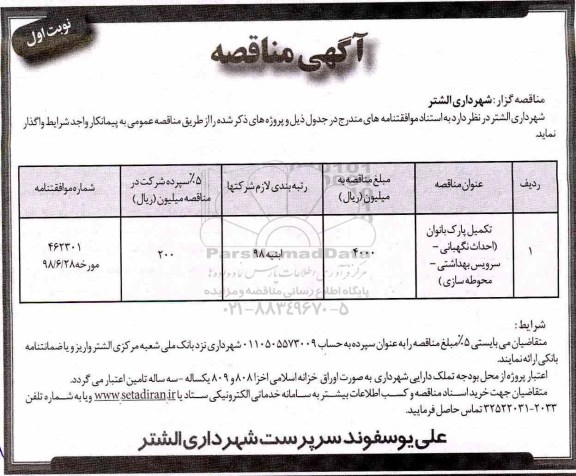 نوبت اول
آگهی مناقصه
مناقصه گزار: شهرداری الشتر
شهرداری الشتر در نظر دارد به استناد موافقتنامه های مندرج در جدول ذیل و پروژه های ذکر شده را از طریق مناقصه عمومی به پیمانکار واجد شرایط واگذار
نماید.
ردیف
عنوان مناقصه
مبلغ مناقصه به
میلیون (ریال)
رتبه بندی لازم شرکتها
۵٪ سپرده شرکت در
مناقصه میلیون (ریال)
شماره موافقتنامه
۱
تکمیل پارک بانوان
(احداث نگهبانی –
سرویس بهداشتی –
محوطه سازی)
۴۰۰۰
ابنیه ۹۸
۲۰۰
۴۶۲۳۰۱
مورخه ۹۸/۶/۲۸
ParsNamadData
پایگاه اطلاع رسانی مناقصه و مزایده
۰۲۱-۸۸۳۴۹۶۷۰-۵
شرایط:
متقاضیان می بایستی ۵٪ مبلغ مناقصه را به عنوان سپرده به حساب ۰۱۱۰۵۰۵۵۷۳۰۰۹ شهرداری نزد بانک ملی شعبه مرکزی الشتر واریز و یا ضمانتنامه
بانکی ارائه نمایند.
اعتبار پروژه از محل بودجه تملک دارایی شهرداری به صورت اوراق خزانه اسلامی اخزا ۸۰۸ و ۸۰۹ یکساله – سه ساله تامین اعتبار می گردد.
متقاضیان جهت خرید اسناد مناقصه و کسب اطلاعات بیشتر به سامانه خدماتی الکترونیکی ستاد یا www.setadiran.ir و یا به شماره تلفن
۳۲۵۲۲۰۳۱-۲۰۳۳ تماس حاصل فرمایید.
علی یوسفوند سرپرست شهرداری الشتر